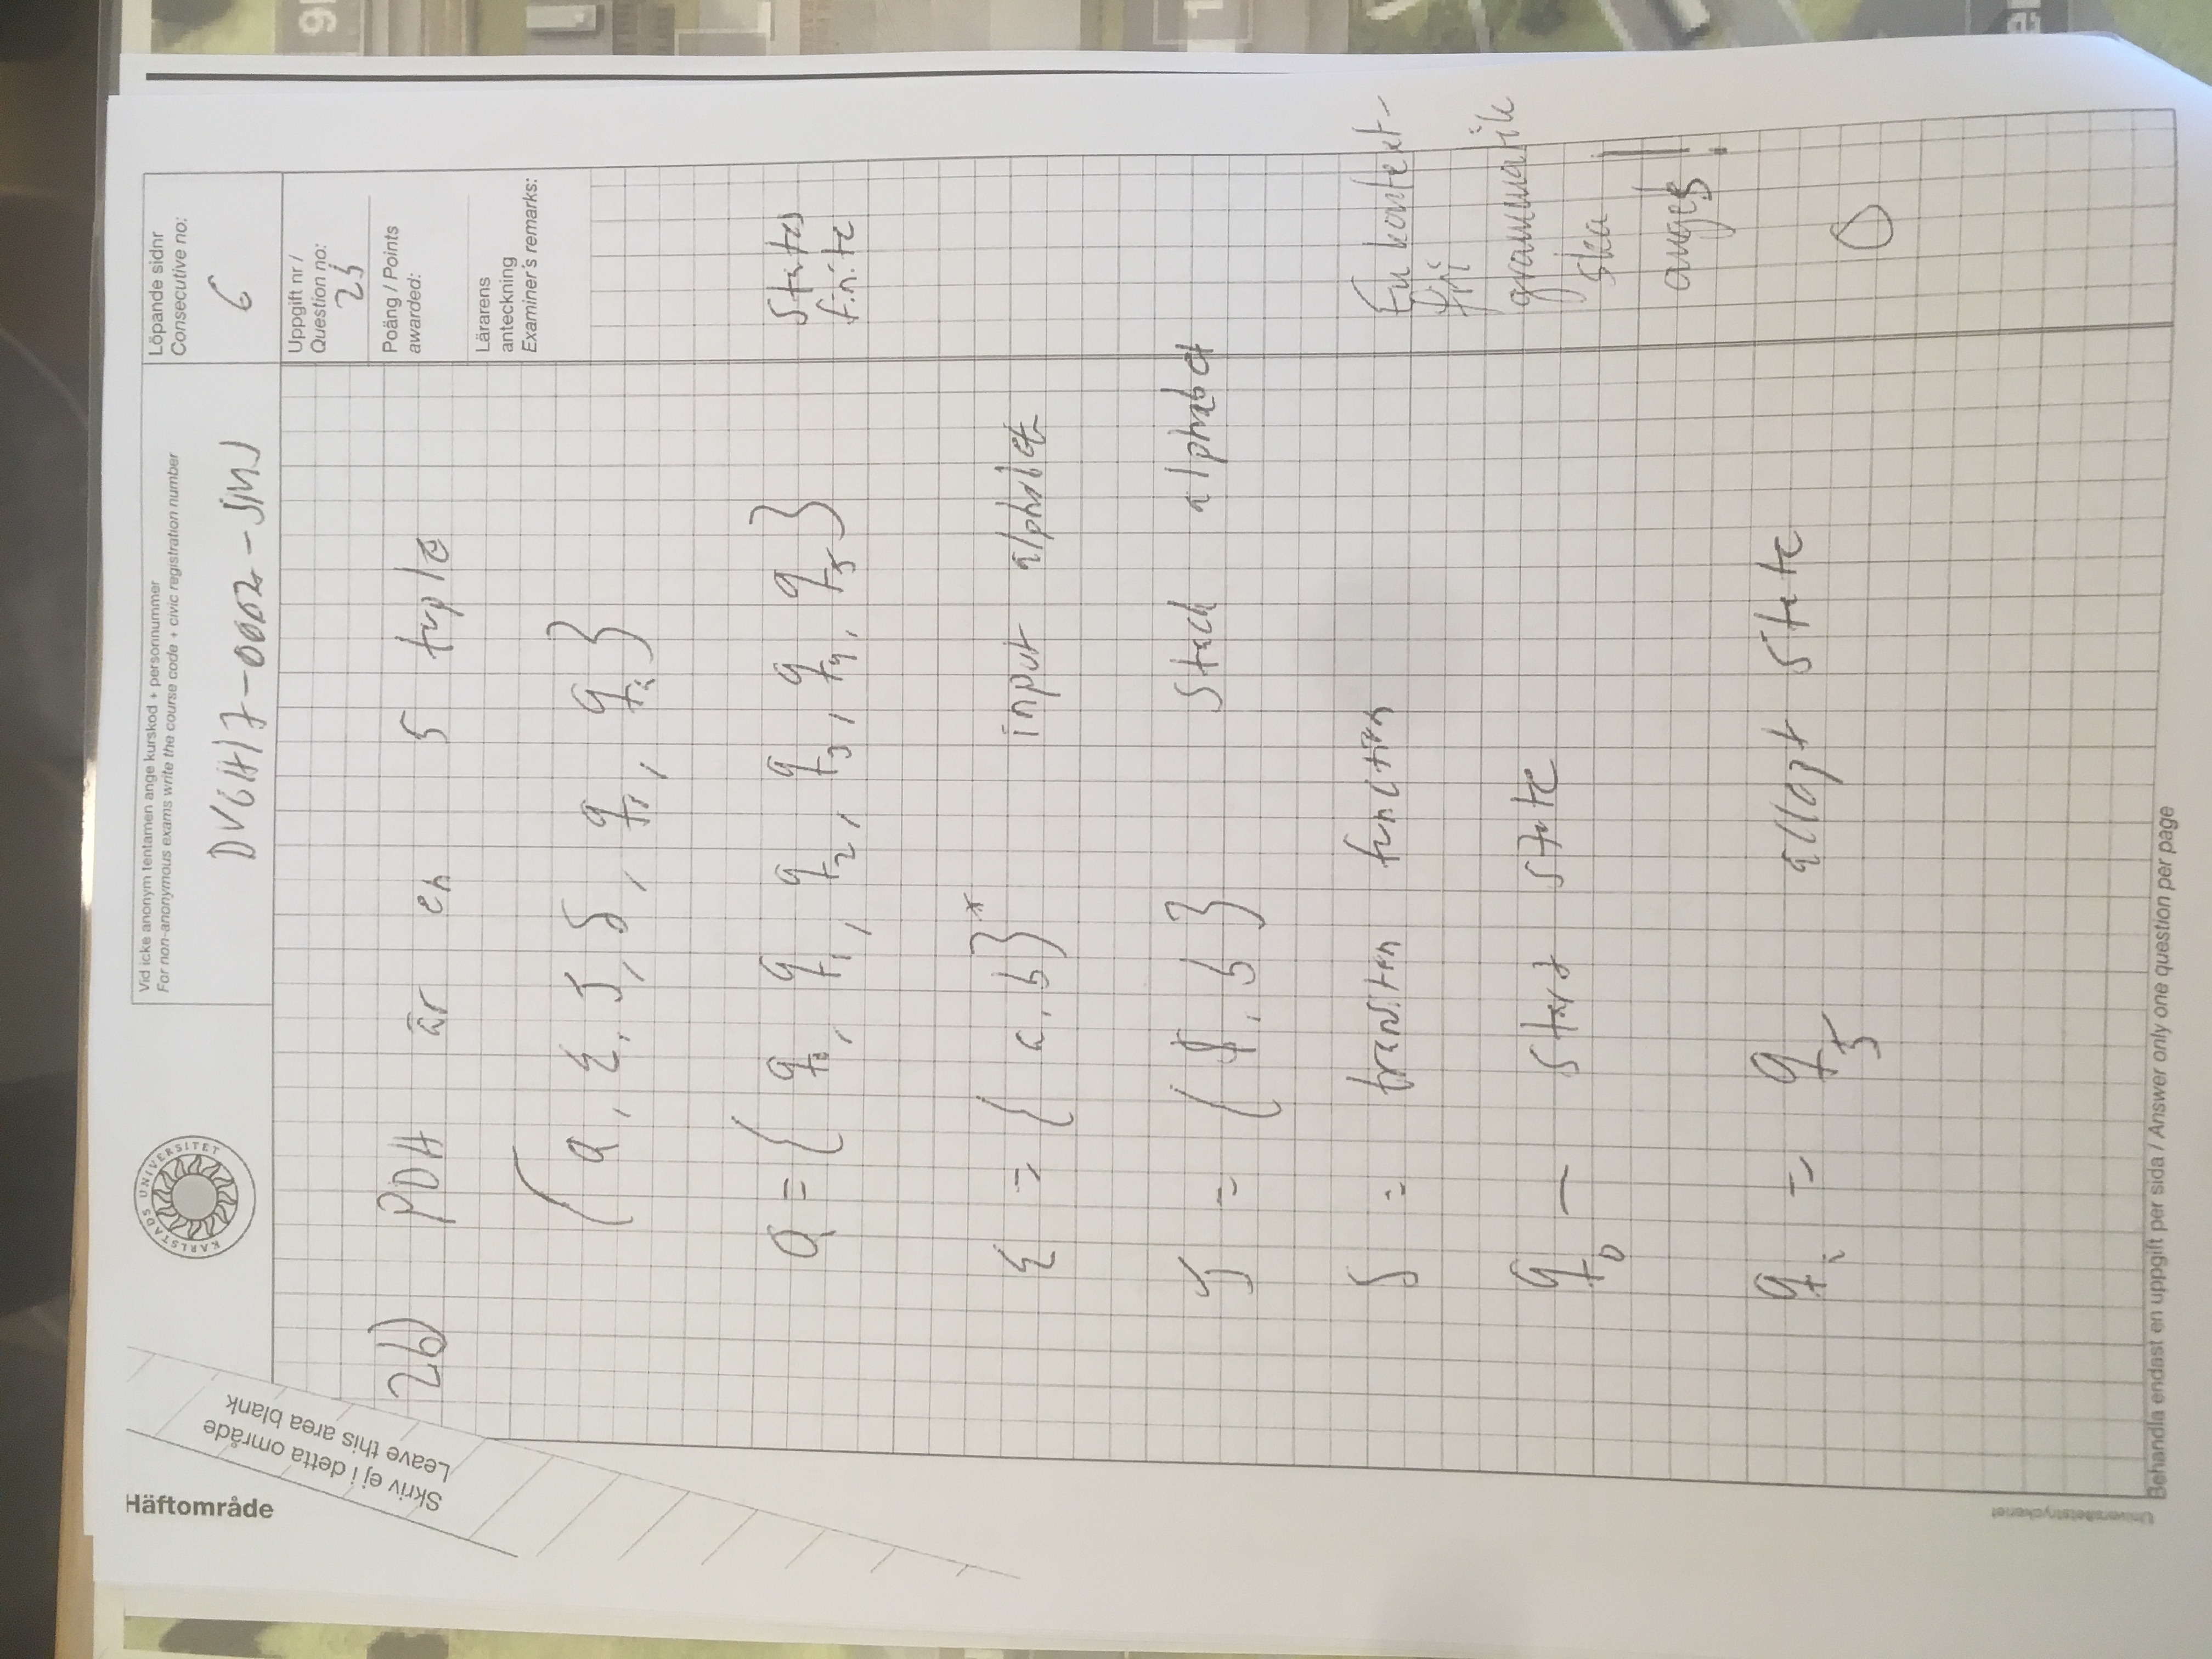 Häftområde
Skriv ej i detta område
Leave this area blank
KARLSTADS UNIVERSITET
Vid icke anonym tentamen ange kurskod + personnummer
For non-anonymous exams write the course code + civic registration number
Löpande sidnr
Consecutive no:
6
Uppgift nr /
Question no:
2b
Poäng / Points
awarded:
Lärarens
anteckning
Examiner's remarks:
2b) PDA är en 5 tuple
( Q, Σ, J, δ, q₁, q₂ }
Q = { q₀, q₁, q₂, q₃, q₄, q₅ } States
finite
Σ = { a, b }* input alphabet
J = { $, b } Stack alphabet
δ = transiton function
q₀ — start state
q = q₅ state
En kontext-
fri
grammatik
ska
anges!
0
Universitetstryckeriet
Behandla endast en uppgift per sida / Answer only one question per page